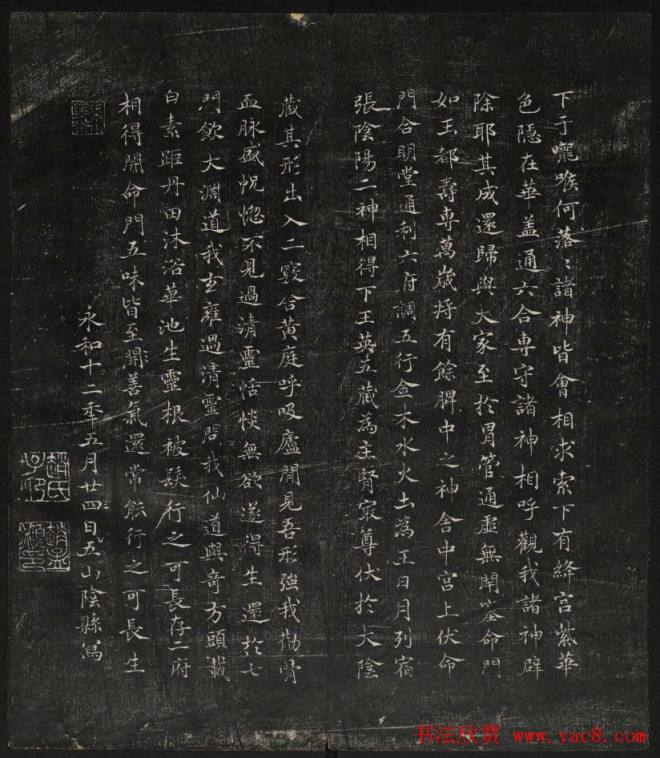 下于嚨喉何落〻諸神皆會相求索下有絳宮紫華
色隱在華盖通六合専守諸神相呼觀我諸神辟
除耶其成還歸與大家至於胃管通虛無閉塞命門
如玉都壽専萬歲将有餘脾中之神舍中宮上伏命
門合明堂通利六府調五行金木水火土為王日月列宿
張陰陽二神相得下玉英五藏為主腎冣尊伏於大陰
藏其形出入二竅合黄庭呼吸廬閒見吾形強我筋骨
血脉盛怳惚不見過清靈恬惔無欲遂得生還於七
門飲大淵道我玄雍過清靈問我仙道與奇方頭載
白素距丹田沐浴華池生靈根被髮行之可長存二府
相得開命門五味皆至開善氣還常能行之可長生
永和十二年五月廿四日五山陰縣寫
趙氏子昂
趙孟頫印
书法欣赏 www.yac8.com